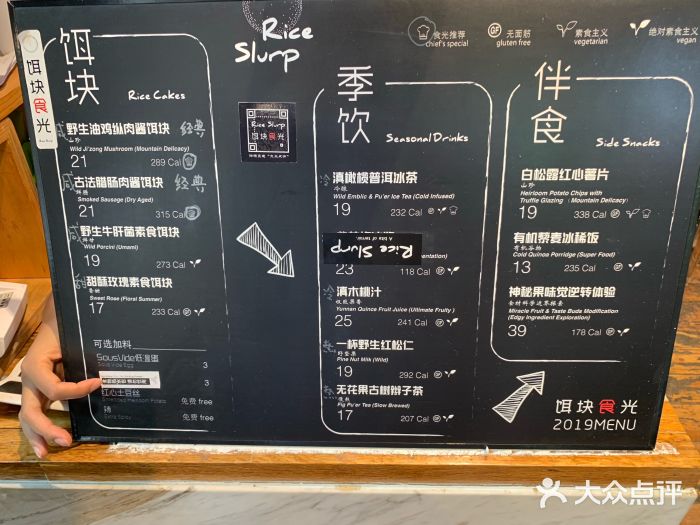 饵块食光
饵块
Rice Cakes
咸 野生油鸡枞肉酱饵块 经典
山珍
Wild Ji'zong Mushroom (Mountain Delicacy)
21 289 Cal
咸 古法腊肠肉酱饵块 经典
Smoked Sausage (Dry Aged)
21 315 Cal
咸 野生牛肝菌素食饵块
Wild Porcini (Umami)
19 273 Cal
甜 甜酥玫瑰素食饵块
Sweet Rose (Floral Summer)
17 233 Cal
可选加料
SousVide低温蛋 3
Sous Vide Egg
3
红心土豆丝 免费 free
Shredded Heirloom Potato
辣 免费 free
Extra Spicy
Rice
Slurp
Rice Slurp
饵块食光
食光推荐
chief's special
GF 无面筋
gluten free
素食主义
vegetarian
绝对素食主义
vegan
季饮
Seasonal Drinks
冷 滇橄榄普洱冰茶
冷酿
Wild Emblic & Pu'er Ice Tea (Cold Infused)
19 232 Cal
Rice Slurp
23 118 Cal
冷 滇木桃汁
Yunnan Quince Fruit Juice (Ultimate Fruity)
25 241 Cal
热 一杯野生红松仁
野坚果
Pine Nut Milk (Wild)
19 292 Cal
热 无花果古树辫子茶
慢煮
Fig Pu'er Tea (Slow Brewed)
17 207 Cal
伴食
Side Snacks
白松露红心薯片
山珍
Heirloom Potato Chips with
Truffle Glazing (Mountain Delicacy)
19 338 Cal
有机藜麦冰稀饭
有机谷物
Cold Quinoa Porridge (Super Food)
13 235 Cal
神秘果味觉逆转体验
食材科学边界探索
Miracle Fruit & Taste Buds Modification
(Edgy Ingredient Exploration)
39 178 Cal
饵块食光
2019MENU
大众点评